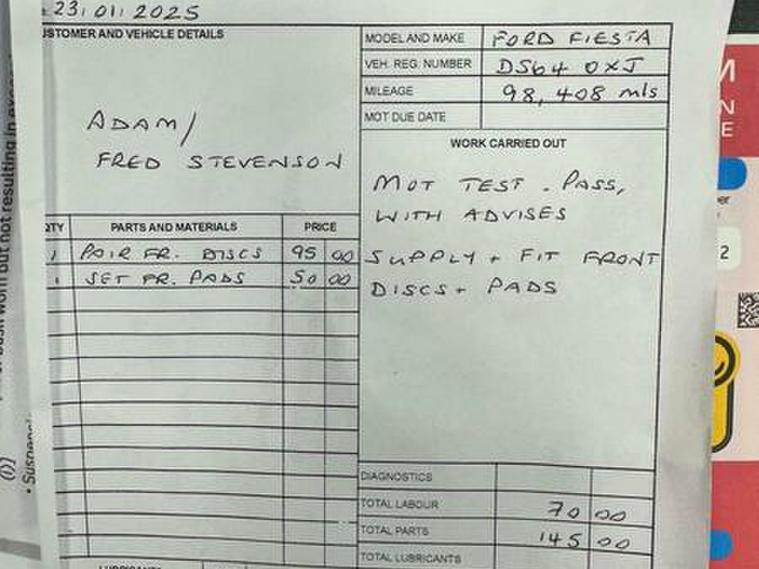 23/01/2025
USTOMER AND VEHICLE DETAILS
ADAM/
FRED STEVENSON
MODEL AND MAKE FORD FIESTA
VEH. REG. NUMBER DS64 OXJ
MILEAGE 98,408 mls
MOT DUE DATE
WORK CARRIED OUT
MOT TEST. PASS,
WITH ADVISES
SUPPLY + FIT FRONT
DISCS + PADS
QTY PARTS AND MATERIALS PRICE
1 PAIR FR. DISCS 95 00
1 SET FR. PADS 50 00
DIAGNOSTICS
TOTAL LABOUR 70 00
TOTAL PARTS 145 00
TOTAL LUBRICANTS
but not resulting in
(i)
M
N
E
2